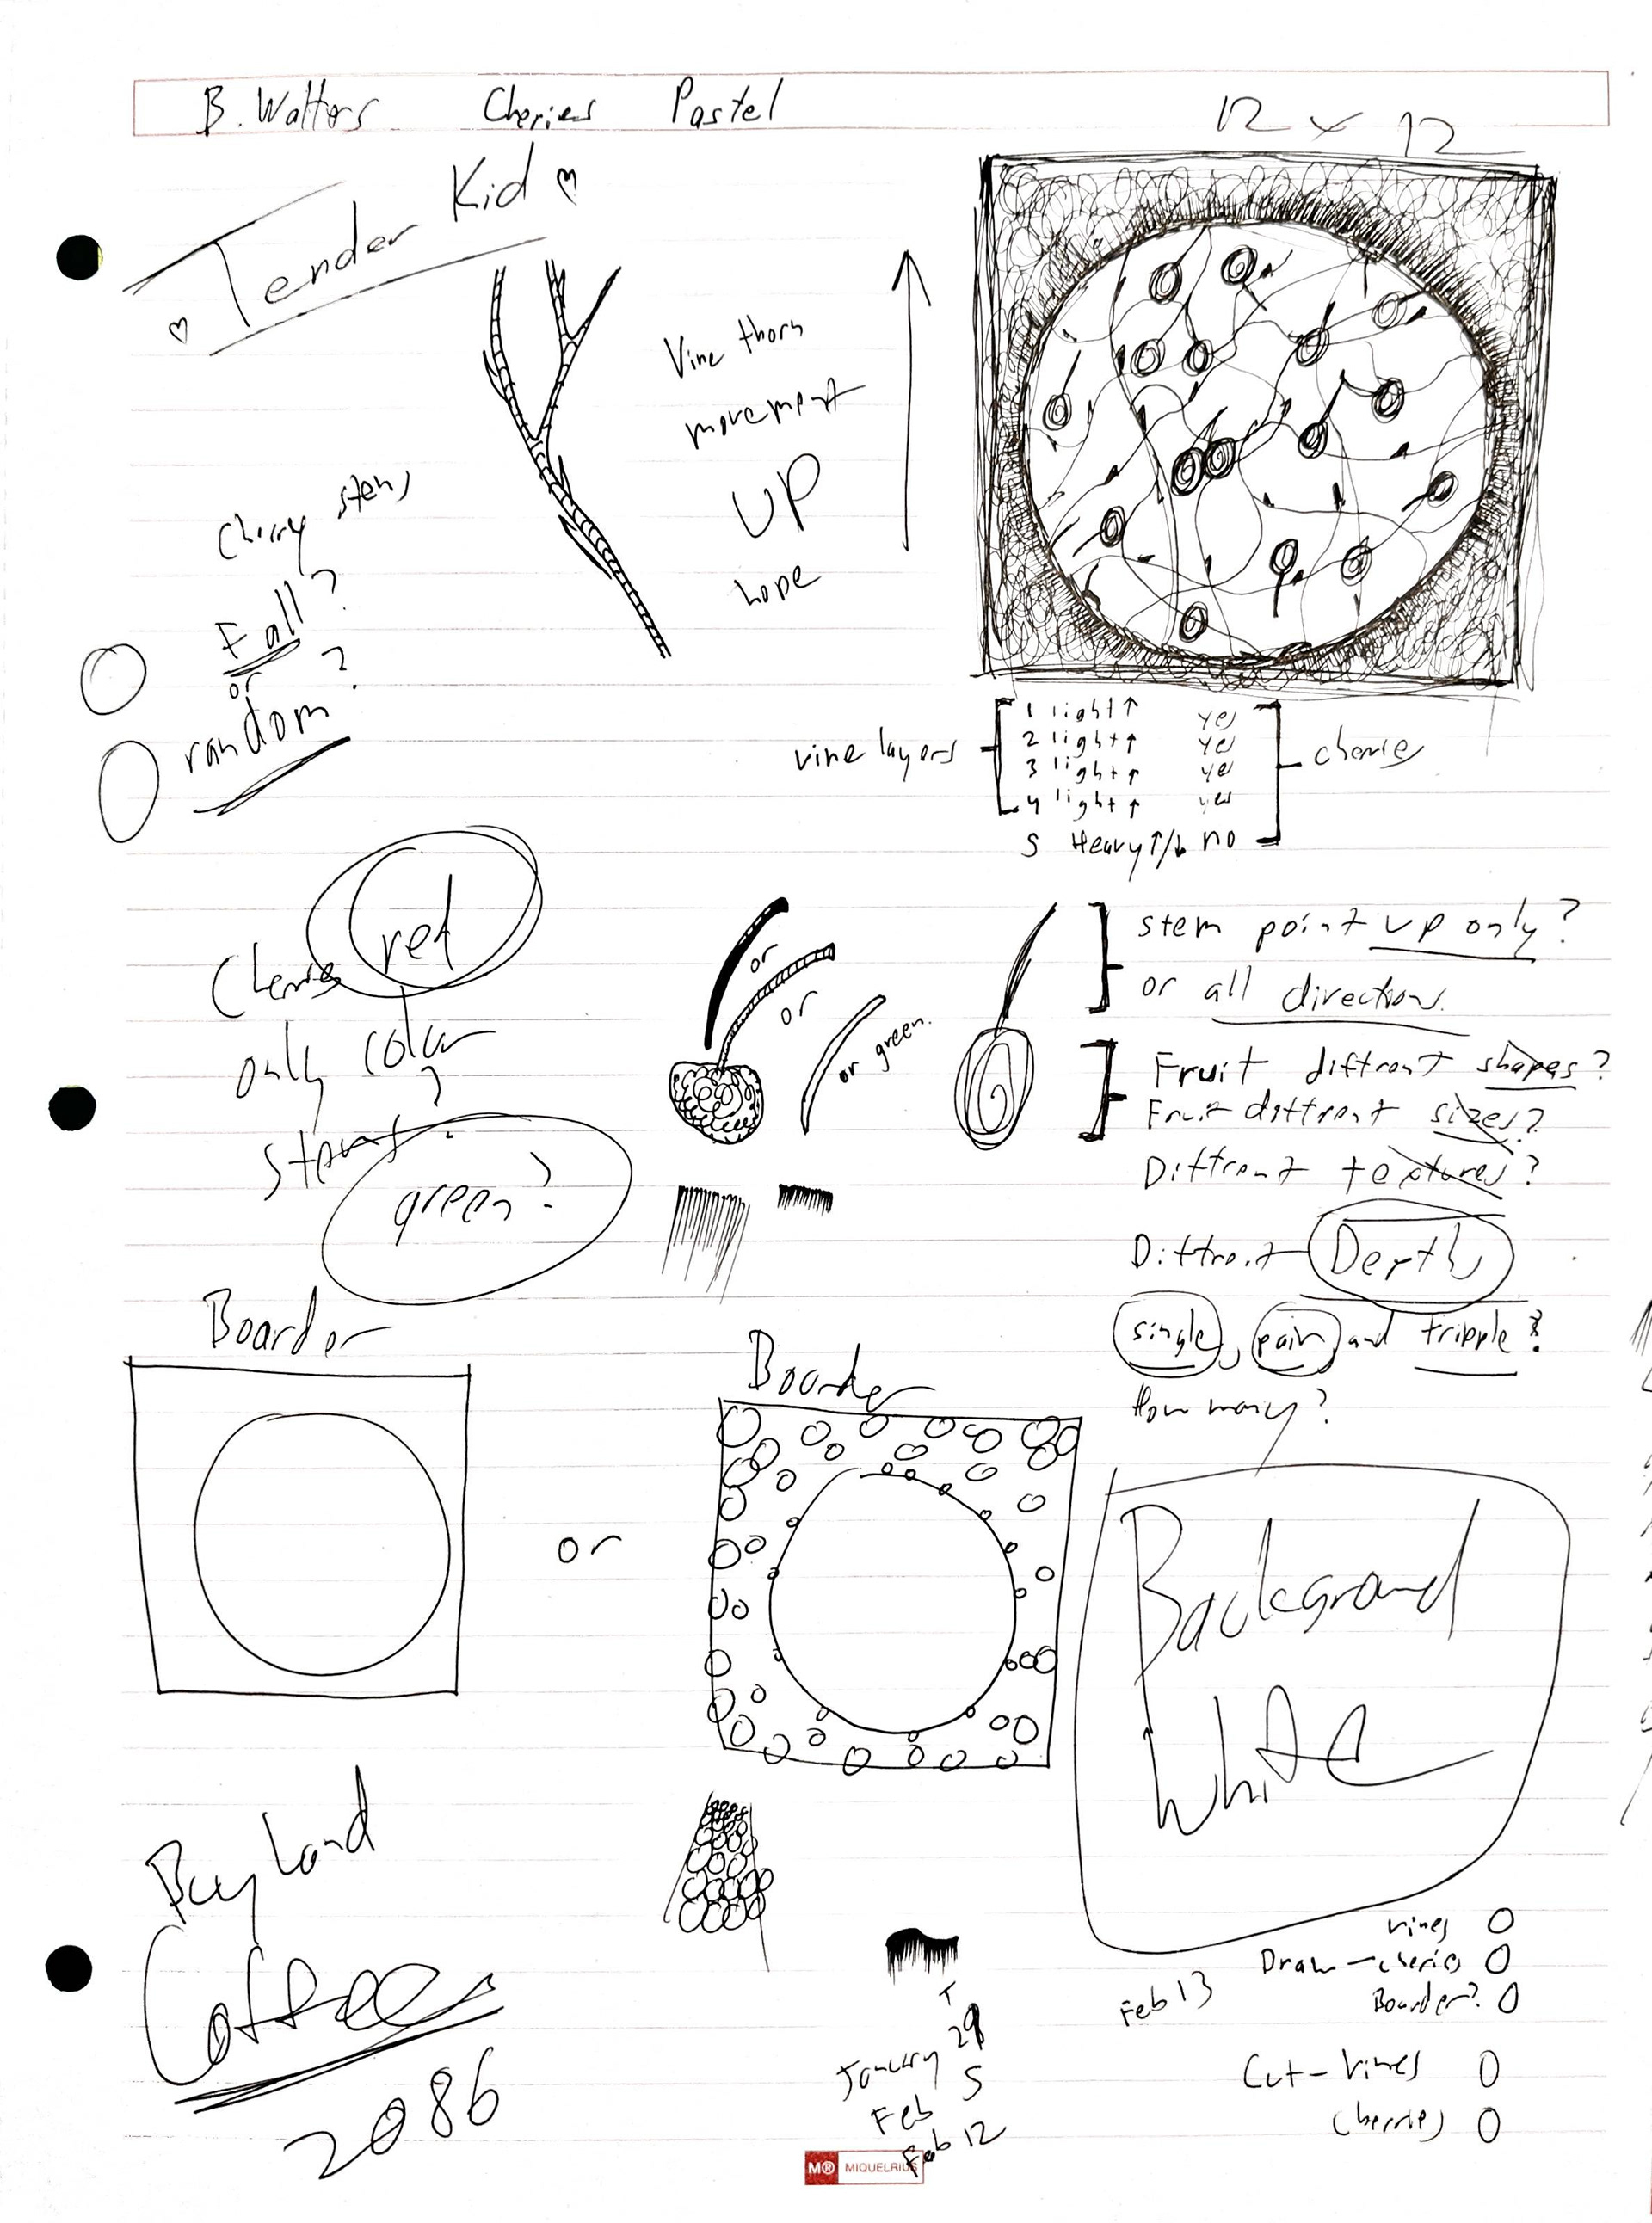 B. Walters Cheries Pastel
12 x 12
Tender Kid
Vine thorn
movement
UP
hope
Cherry stems
Fall?
or
random?
vine layers
1 light↑ yes
2 light↑ yes
3 light↑ yes
4 light↑ yes
5 Heavy↑/↓ no
cherries
Cherries red
only color
?
Stems?
green?
or
or
or green.
Stem point up only?
or all direction.
Fruit diffrent shapes?
Fruit diffrent sizes?
Diffrent textures?
Diffrent Depth
single, pair and tripple?
How many?
Boarder
or
Boarder
Background
White
Bayland
Coffee
2086
T
January 29
Feb 5
Feb 12
Feb 13
vines O
Draw - cheries O
Boarder? O
Cut - Vines O
Cherries O
M® MIQUELRIUS